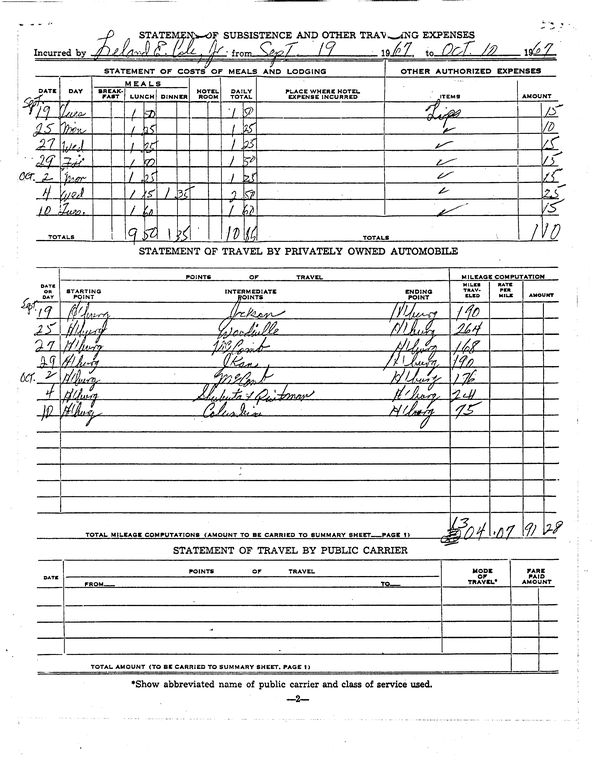 STATEMENT OF SUBSISTENCE AND OTHER TRAVELING EXPENSES
Incurred by Leland E. Cole, Jr. from Sept. 19 1967 to Oct. 10 1967
STATEMENT OF COSTS OF MEALS AND LODGING OTHER AUTHORIZED EXPENSES
MEALS
DATE DAY BREAK-FAST LUNCH DINNER HOTEL ROOM DAILY TOTAL PLACE WHERE HOTEL EXPENSE INCURRED ITEMS AMOUNT
Sept. 19 Tues 1 50 1 50 Tips 15
25 Mon 1 25 1 25 ✓ 10
27 Wed 1 25 1 25 ✓ 15
29 Fri 1 50 1 50 ✓ 15
Oct. 2 Mon 1 25 1 25 ✓ 15
4 Wed 1 15 1 35 2 50 ✓ 25
10 Tues. 1 60 1 60 ✓ 15
TOTALS 9 50 1 35 10 TOTALS 1 10
STATEMENT OF TRAVEL BY PRIVATELY OWNED AUTOMOBILE
POINTS OF TRAVEL MILEAGE COMPUTATION
DATE OR DAY STARTING POINT INTERMEDIATE POINTS ENDING POINT MILES TRAV-ELED RATE PER MILE AMOUNT
Sept. 19 H'burg Jackson H'burg 190
25 H'burg Woodville H'burg 264
27 H'burg McComb H'burg 168
29 H'burg H'burg 190
Oct. 2 H'burg McComb H'burg 176
4 H'burg Shubuta & H'burg 241
10 H'burg Columbia H'burg 75
TOTAL MILEAGE COMPUTATIONS (AMOUNT TO BE CARRIED TO SUMMARY SHEET—PAGE 1) 1304 .07 91 28
STATEMENT OF TRAVEL BY PUBLIC CARRIER
DATE POINTS OF TRAVEL MODE OF TRAVEL* FARE PAID AMOUNT
FROM TO
TOTAL AMOUNT (TO BE CARRIED TO SUMMARY SHEET. PAGE 1)
*Show abbreviated name of public carrier and class of service used.
—2—